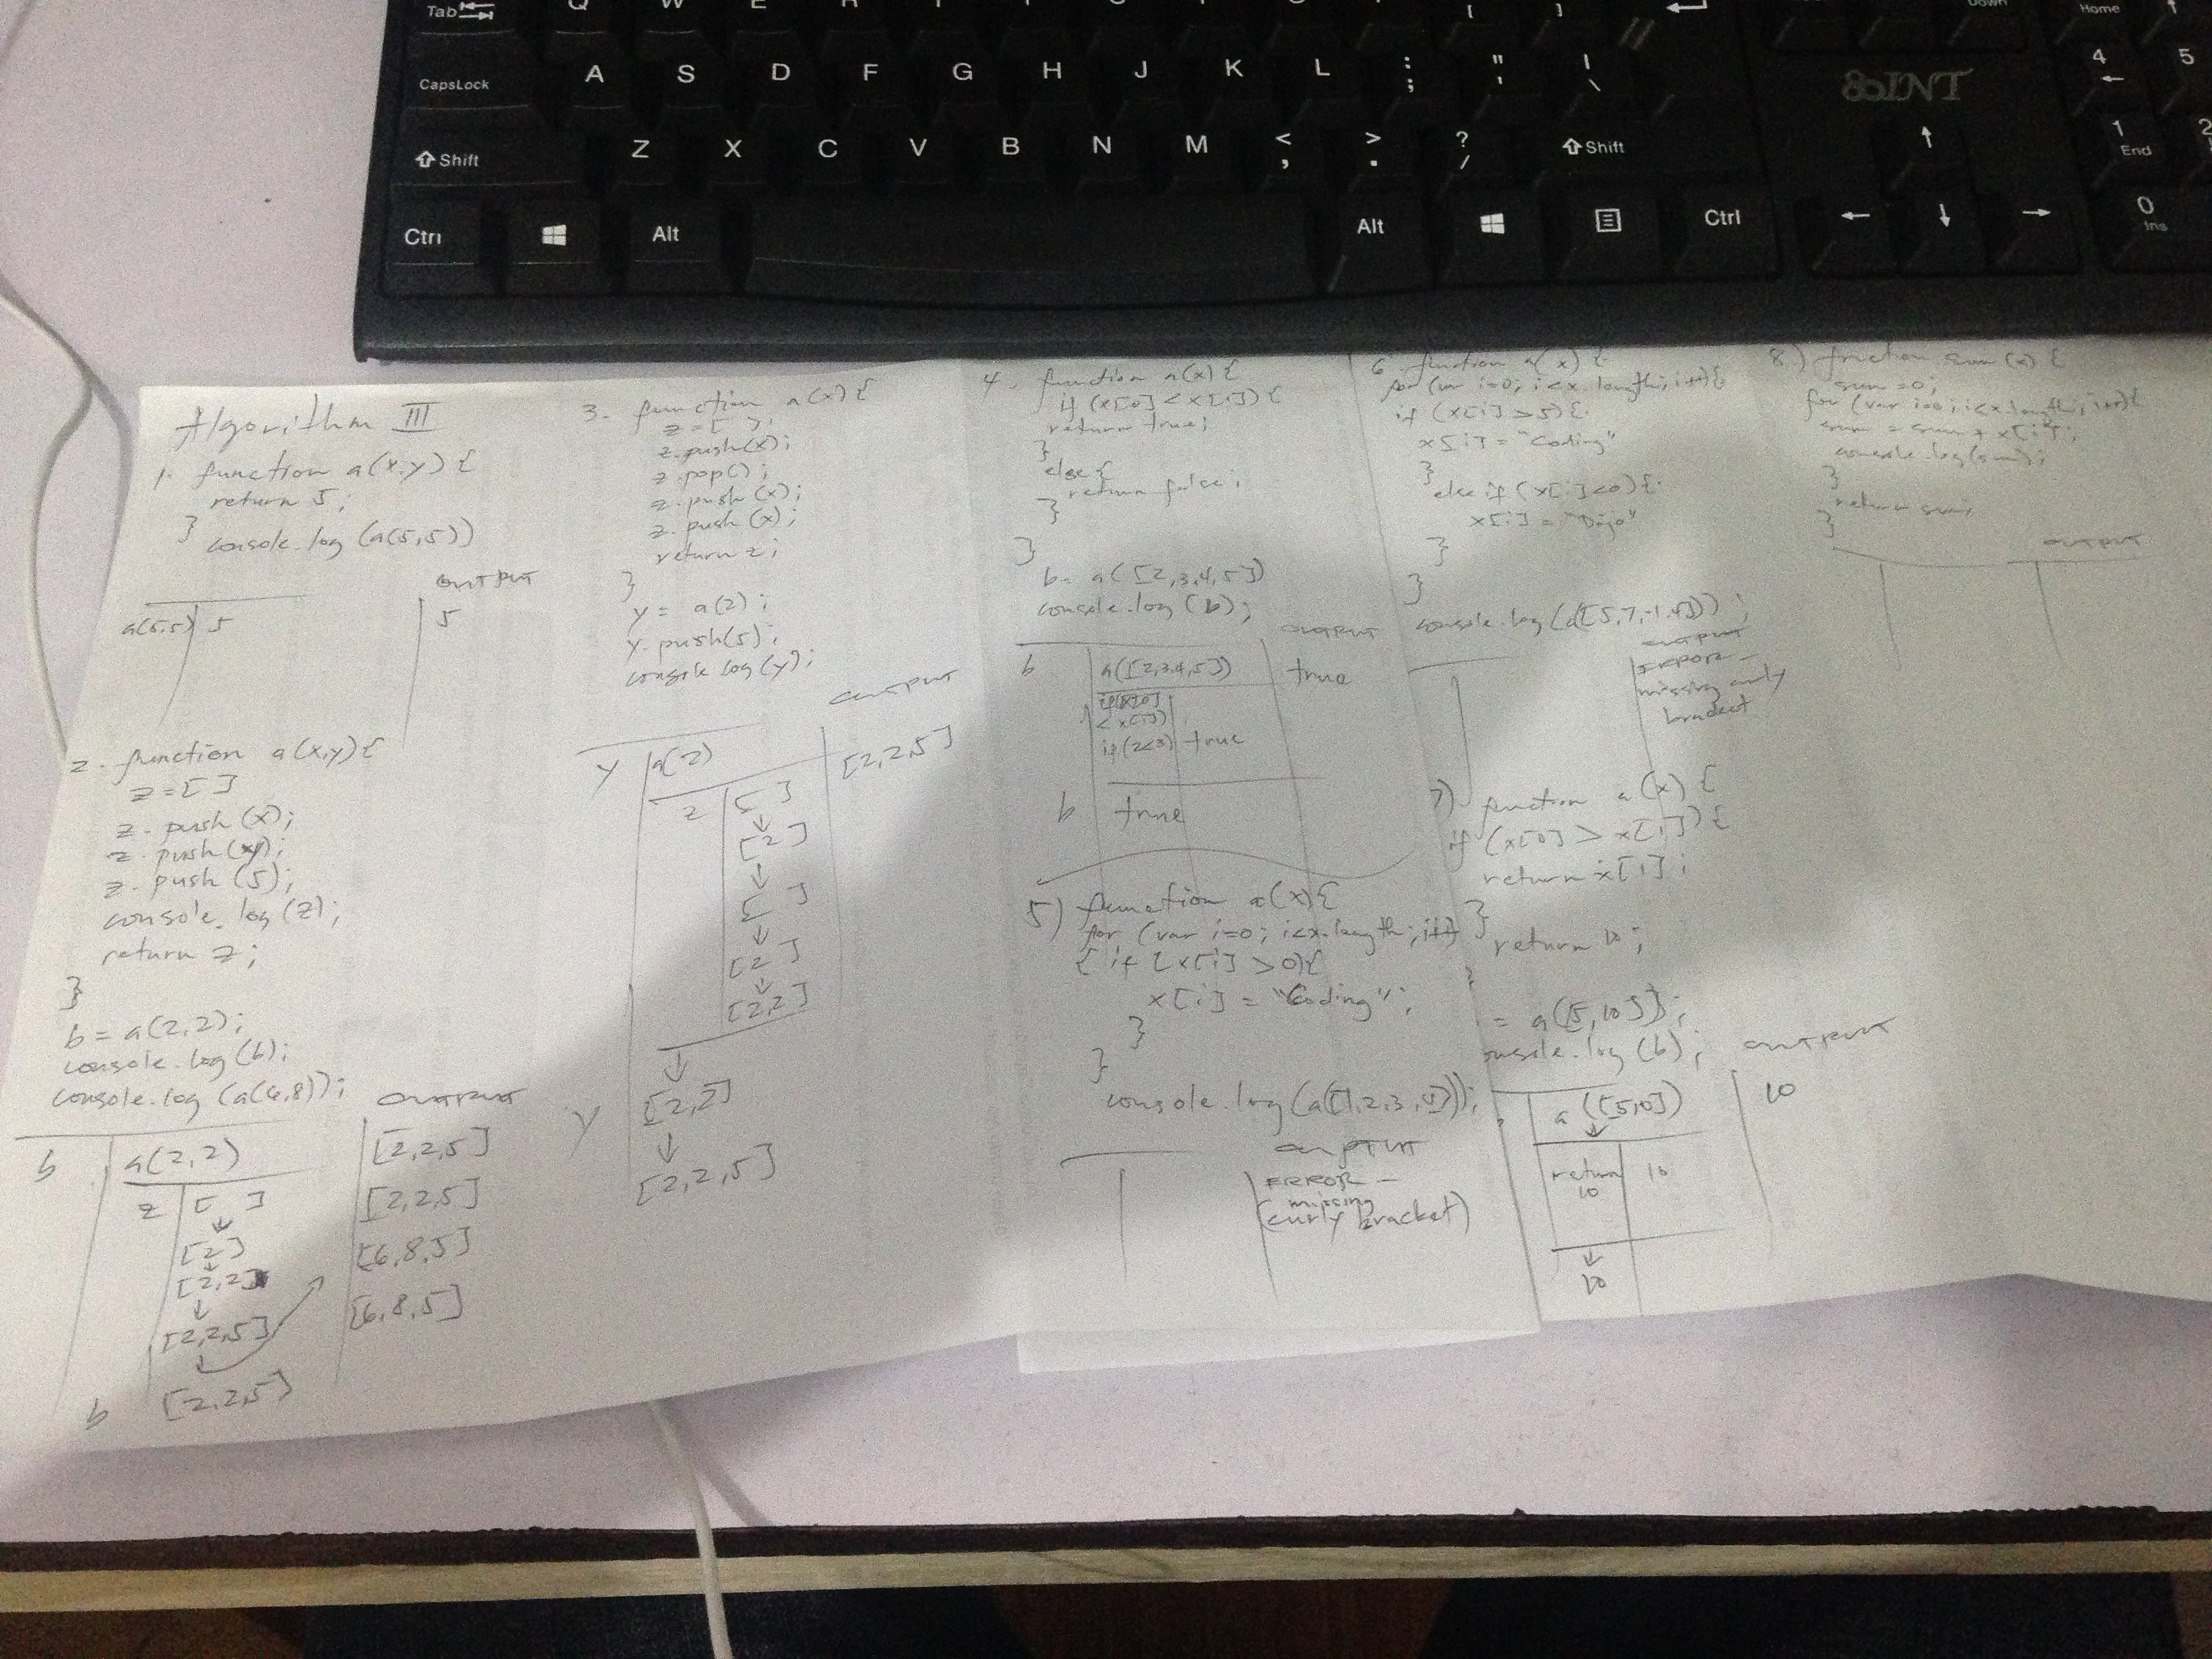 Tab
Q W E R T
[ ]
Down
Home
CapsLock
A S D F G H J K L : ; " ' | \
4
5
Shift
Z X C V B N M < , > . ? / Shift
1
End
2
Ctrl
Alt
Alt
Ctrl
0
Ins
Algorithm III
1. function a(x,y) {
return 5;
}
console.log (a(5,5))
OUTPUT
a(5,5) 5
5
2. function a(x,y){
z = [ ]
z. push (x);
z. push (y);
z. push (5);
console. log (z);
return z;
}
b = a(2,2);
console.log (b);
console.log (a(6,8));
OUTPUT
b a(2,2)
z [ ]
[2]
[2,2]
[2,2,5]
b [2,2,5]
[2,2,5]
[2,2,5]
[6,8,5]
[6,8,5]
3. function a(x){
z = [ ];
z.push(x);
z.pop();
z.push (x);
z.push (x);
return z;
}
y = a(2);
y.push(5);
console log (y);
OUTPUT
y a(2)
z [ ]
[2]
[ ]
[2]
[2,2]
y [2,2]
[2,2,5]
[2,2,5]
4. function a(x) {
if (x[0] < x[1]) {
return true;
}
else {
return false;
}
}
b= a([2,3,4,5])
console.log (b);
OUTPUT
b a([2,3,4,5])
true
if(x[0]
< x[1])
if(2<3) true
b true
5) function a(x){
for (var i=0; i<x.length; i++)
{ if (x[i] > 0){
x[i] = "Coding";
}
}
console.log (a([1,2,3,4]));
OUTPUT
ERROR -
missing
(curly bracket)
6. function a(x) {
for (var i=0; i<x.length; i++){
if (x[i] > 5) {
x[i] = "Coding"
}
else if (x[i]<0) {
x[i] = "Dojo"
}
}
console.log (a([5,7,-1,4]));
OUTPUT
ERROR -
missing curly
bracket
7) function a(x) {
if (x[0] > x[1]) {
return x[1];
}
return 10;
= a([5,10]);
onsole.log (b);
OUTPUT
a ([5,10])
return
10
10
10
10
8.) function sum (x) {
sum = 0;
for (var i=0; i<x.length; i++){
sum = sum + x[i];
console.log(sum);
}
return sum;
}
OUTPUT